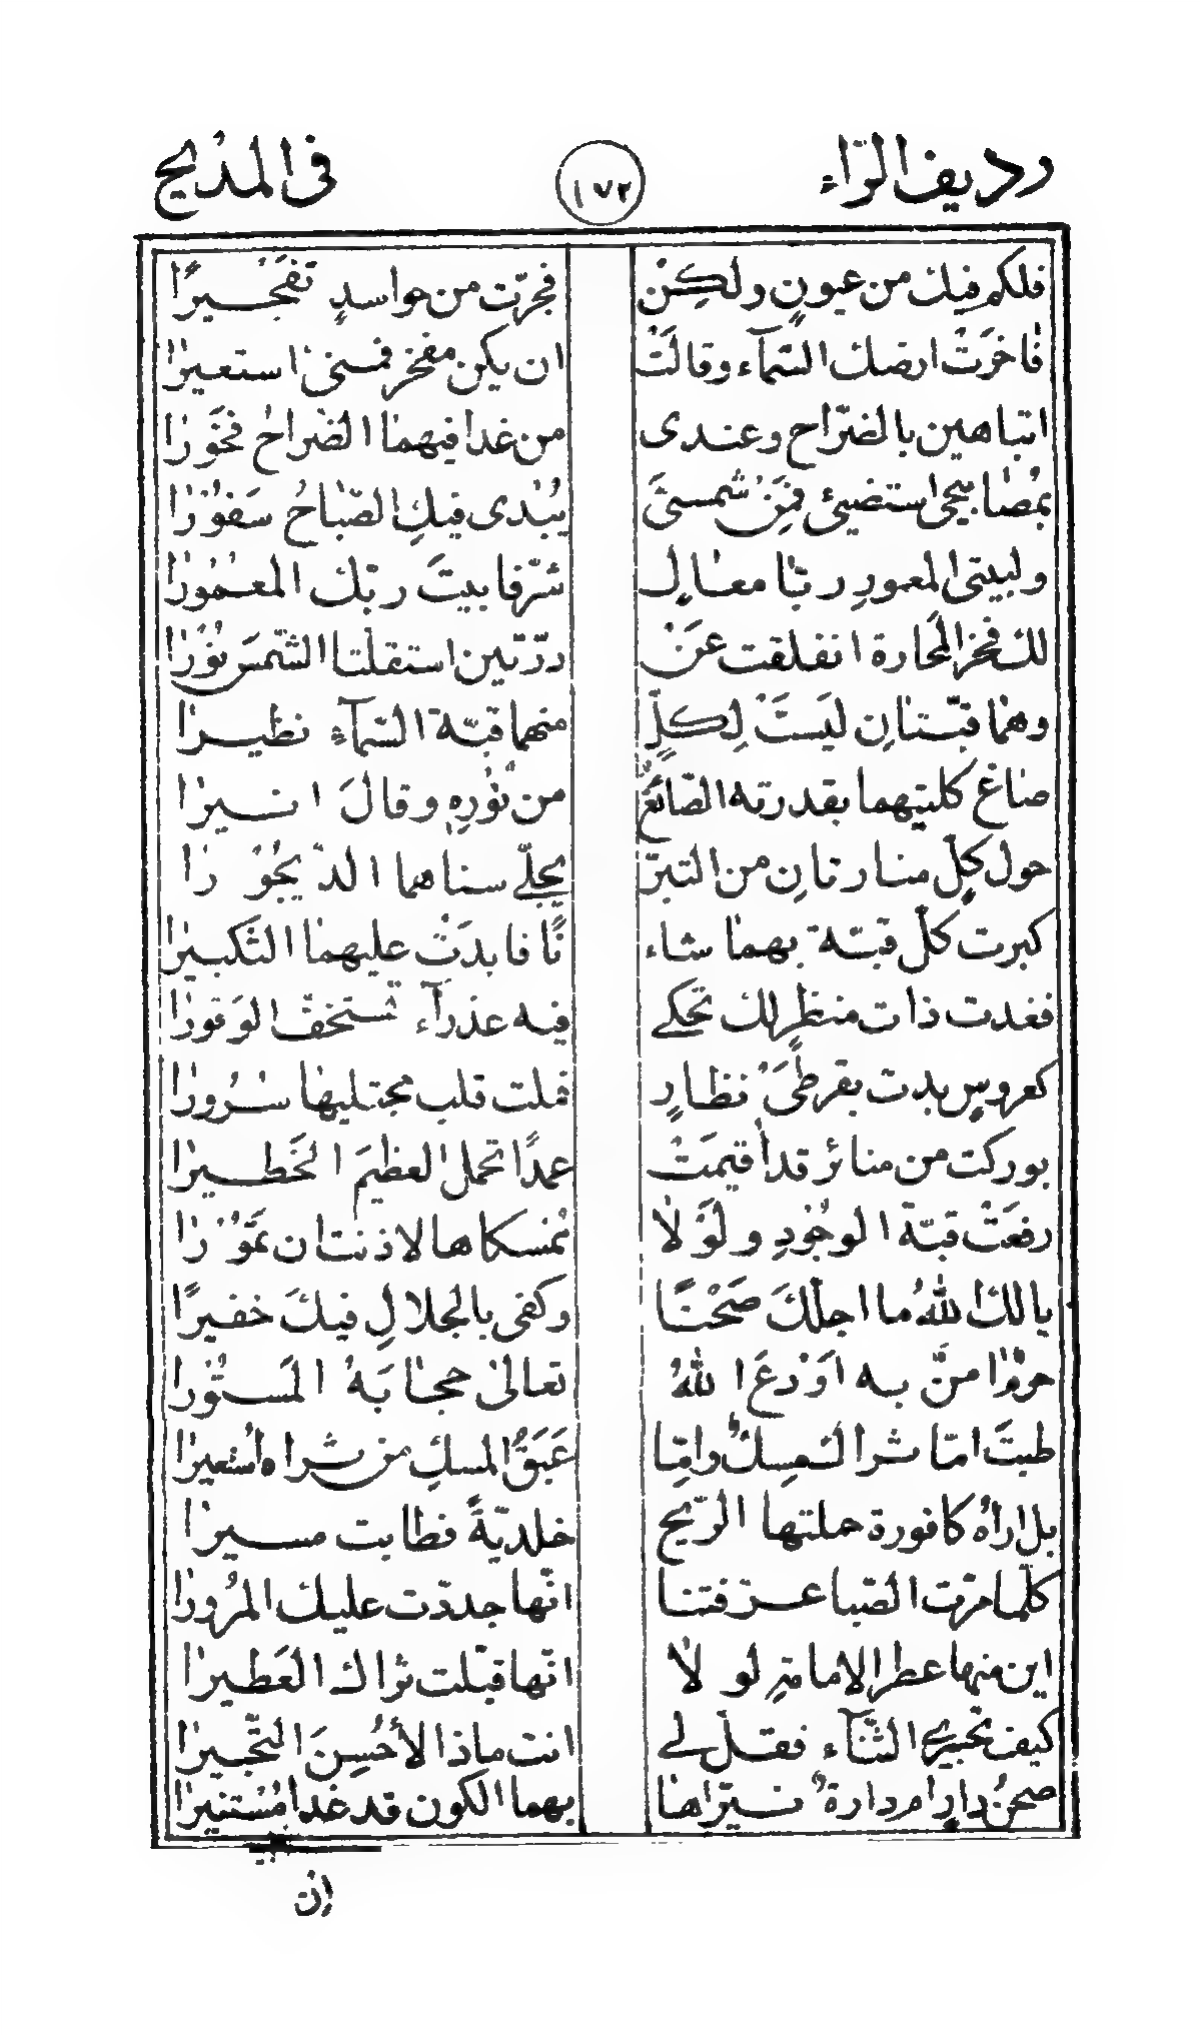 رديف الرّاء ١٧٢ فى المديح
فلكم فيك من عيونٍ ولكِنْ فجرّت من حواسدٍ تفجيرًا
فاخَرَتْ ارضك السّمآء وقالَتْ ان يكن مفخر فمنى استعيرا
اتباهين بالضّراح وعندى من غدا فيهما الضراح فخَورا
بمُصابيحى استضيئ فمَنْ شمسىَ يبُدى فيكِ الصّباحُ سَفوُرا
ولبيتى المعمورِ ربّا معالٍ شرّفا بيتَ ربّك المعمُورا
لك فخر المحارة انفلقت عَنْ درّتين استقلّتا الشّمسَ نُورا
وهما قبّتانِ ليَستَْ لِكلٍّ منهما قبّة السّمآءِ نظيرا
صاغ كلتيهما بقدرته الصّائغُ من نُورِه وقالَ انيرا
حول كلٍّ منارتانِ من التبرّ يجلّى سناهما الدّيجُورا
كبرت كلّ قبّة بهما شاء نًا فابدَتْ عليهما التّكبيرا
فغدت ذات منظرٍ لك تحكى فيه عذرآء تستخفّ الوَقورا
كعروسٍ بدت بقرطَىْ نظارٍ فملت قلب مجتليها سُرُورا
بوركت من منائر قد أقيمَتْ عمدًا تحمل العظيمَ الخَطيرا
رفعَتْ قبّة الوجُودِ ولَوْلا مُمسكاها لاذنت ان تمَوُرا
يا لك اللهُ ما اجلّكَ صَحْنًا وكفى بالجلالِ فيكَ خفيرًا
حرمًا منّ به اوَدَعَ اللهُ تعالى حجابَهُ المَستُورا
طبتَ امّا ثراك مِسكٌ وامّا عَبَقُ المسكِ من ثراه استعيرا
بل اراهُ كافورة حملتها الرّيح خلديّةً فطابت مسيرا
كلّما مرّت الصّبا عرفتنا انّها جددّت عليك المرُورا
اين منها عطر الامامة لولا انّها قبّلت ثراك العَطيرا
كيف تحبيرى الثّنآء فقل لى انت ماذا لأحُسِنَ التّحبيرا
صحنُ دارٍ ام دارةٌ نيرّاها بهما الكون قد غدا مُستنيرا
ان